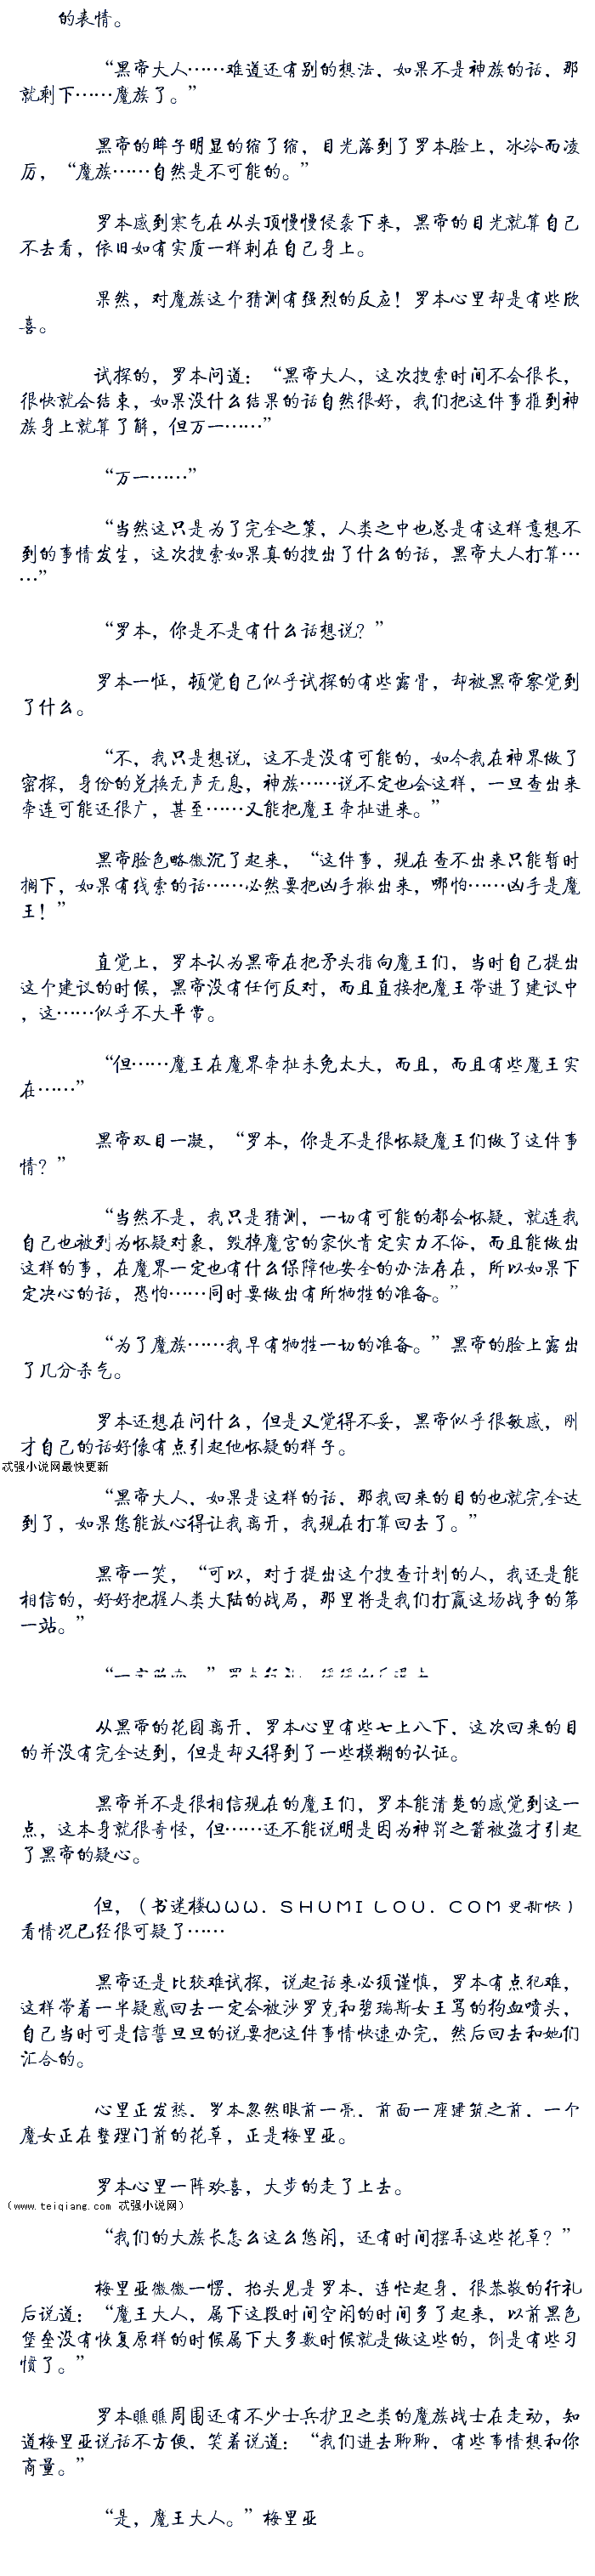 的表情。
“黑帝大人……难道还有别的想法，如果不是神族的话，那
就剩下……魔族了。”
黑帝的眸子明显的缩了缩，目光落到了罗本脸上，冰冷而凌
厉，“魔族……自然是不可能的。”
罗本感到寒气在从头顶慢慢侵袭下来，黑帝的目光就算自己
不去看，依旧如有实质一样刺在自己身上。
果然，对魔族这个猜测有强烈的反应！罗本心里却是有些欣
喜。
试探的，罗本问道：“黑帝大人，这次搜索时间不会很长，
很快就会结束，如果没什么结果的话自然很好，我们把这件事推到神
族身上就算了解，但万一……”
“万一……”
“当然这只是为了完全之策，人类之中也总是有这样意想不
到的事情发生，这次搜索如果真的搜出了什么的话，黑帝大人打算…
…”
“罗本，你是不是有什么话想说？”
罗本一怔，顿觉自己似乎试探的有些露骨，却被黑帝察觉到
了什么。
“不，我只是想说，这不是没有可能的，如今我在神界做了
密探，身份的兑换无声无息，神族……说不定也会这样，一旦查出来
牵连可能还很广，甚至……又能把魔王牵扯进来。”
黑帝脸色略微沉了起来，“这件事，现在查不出来只能暂时
搁下，如果有线索的话……必然要把凶手揪出来，哪怕……凶手是魔
王！”
直觉上，罗本认为黑帝在把矛头指向魔王们，当时自己提出
这个建议的时候，黑帝没有任何反对，而且直接把魔王带进了建议中
，这……似乎不大平常。
“但……魔王在魔界牵扯未免太大，而且，而且有些魔王实
在……”
黑帝双目一凝，“罗本，你是不是很怀疑魔王们做了这件事
情？”
“当然不是，我只是猜测，一切有可能的都会怀疑，就连我
自己也被列为怀疑对象，毁掉魔宫的家伙肯定实力不俗，而且能做出
这样的事，在魔界一定也有什么保障他安全的办法存在，所以如果下
定决心的话，恐怕……同时要做出有所牺牲的准备。”
“为了魔族……我早有牺牲一切的准备。”黑帝的脸上露出
了几分杀气。
罗本还想在问什么，但是又觉得不妥，黑帝似乎很敏感，刚
才自己的话好像有点引起他怀疑的样子。
忒强小说网最快更新
“黑帝大人，如果是这样的话，那我回来的目的也就完全达
到了，如果您能放心得让我离开，我现在打算回去了。”
黑帝一笑，“可以，对于提出这个搜查计划的人，我还是能
相信的，好好把握人类大陆的战局，那里将是我们打赢这场战争的第
一站。”
从黑帝的花园离开，罗本心里有些七上八下，这次回来的目
的并没有完全达到，但是却又得到了一些模糊的认证。
黑帝并不是很相信现在的魔王们，罗本能清楚的感觉到这一
点，这本身就很奇怪，但……还不能说明是因为神罚之箭被盗才引起
了黑帝的疑心。
但，（书迷楼ＷＷＷ．ＳＨＵＭＩＬＯＵ．ＣＯＭ更新快）
看情况已经很可疑了……
黑帝还是比较难试探，说起话来必须谨慎，罗本有点犯难，
这样带着一半疑惑回去一定会被沙罗克和碧瑞斯女王骂的狗血喷头，
自己当时可是信誓旦旦的说要把这件事情快速办完，然后回去和她们
汇合的。
心里正发愁，罗本忽然眼前一亮，前面一座建筑之前，一个
魔女正在整理门前的花草，正是梅里亚。
罗本心里一阵欢喜，大步的走了上去。
（www.teiqiang.com 忒强小说网）
“我们的大族长怎么这么悠闲，还有时间摆弄这些花草？”
梅里亚微微一愣，抬头见是罗本，连忙起身，很恭敬的行礼
后说道：“魔王大人，属下这段时间空闲的时间多了起来，以前黑色
堡垒没有恢复原样的时候属下大多数时候就是做这些的，倒是有些习
惯了。”
罗本瞧瞧周围还有不少士兵护卫之类的魔族战士在走动，知
道梅里亚说话不方便，笑着说道：“我们进去聊聊，有些事情想和你
商量。”
“是，魔王大人。”梅里亚